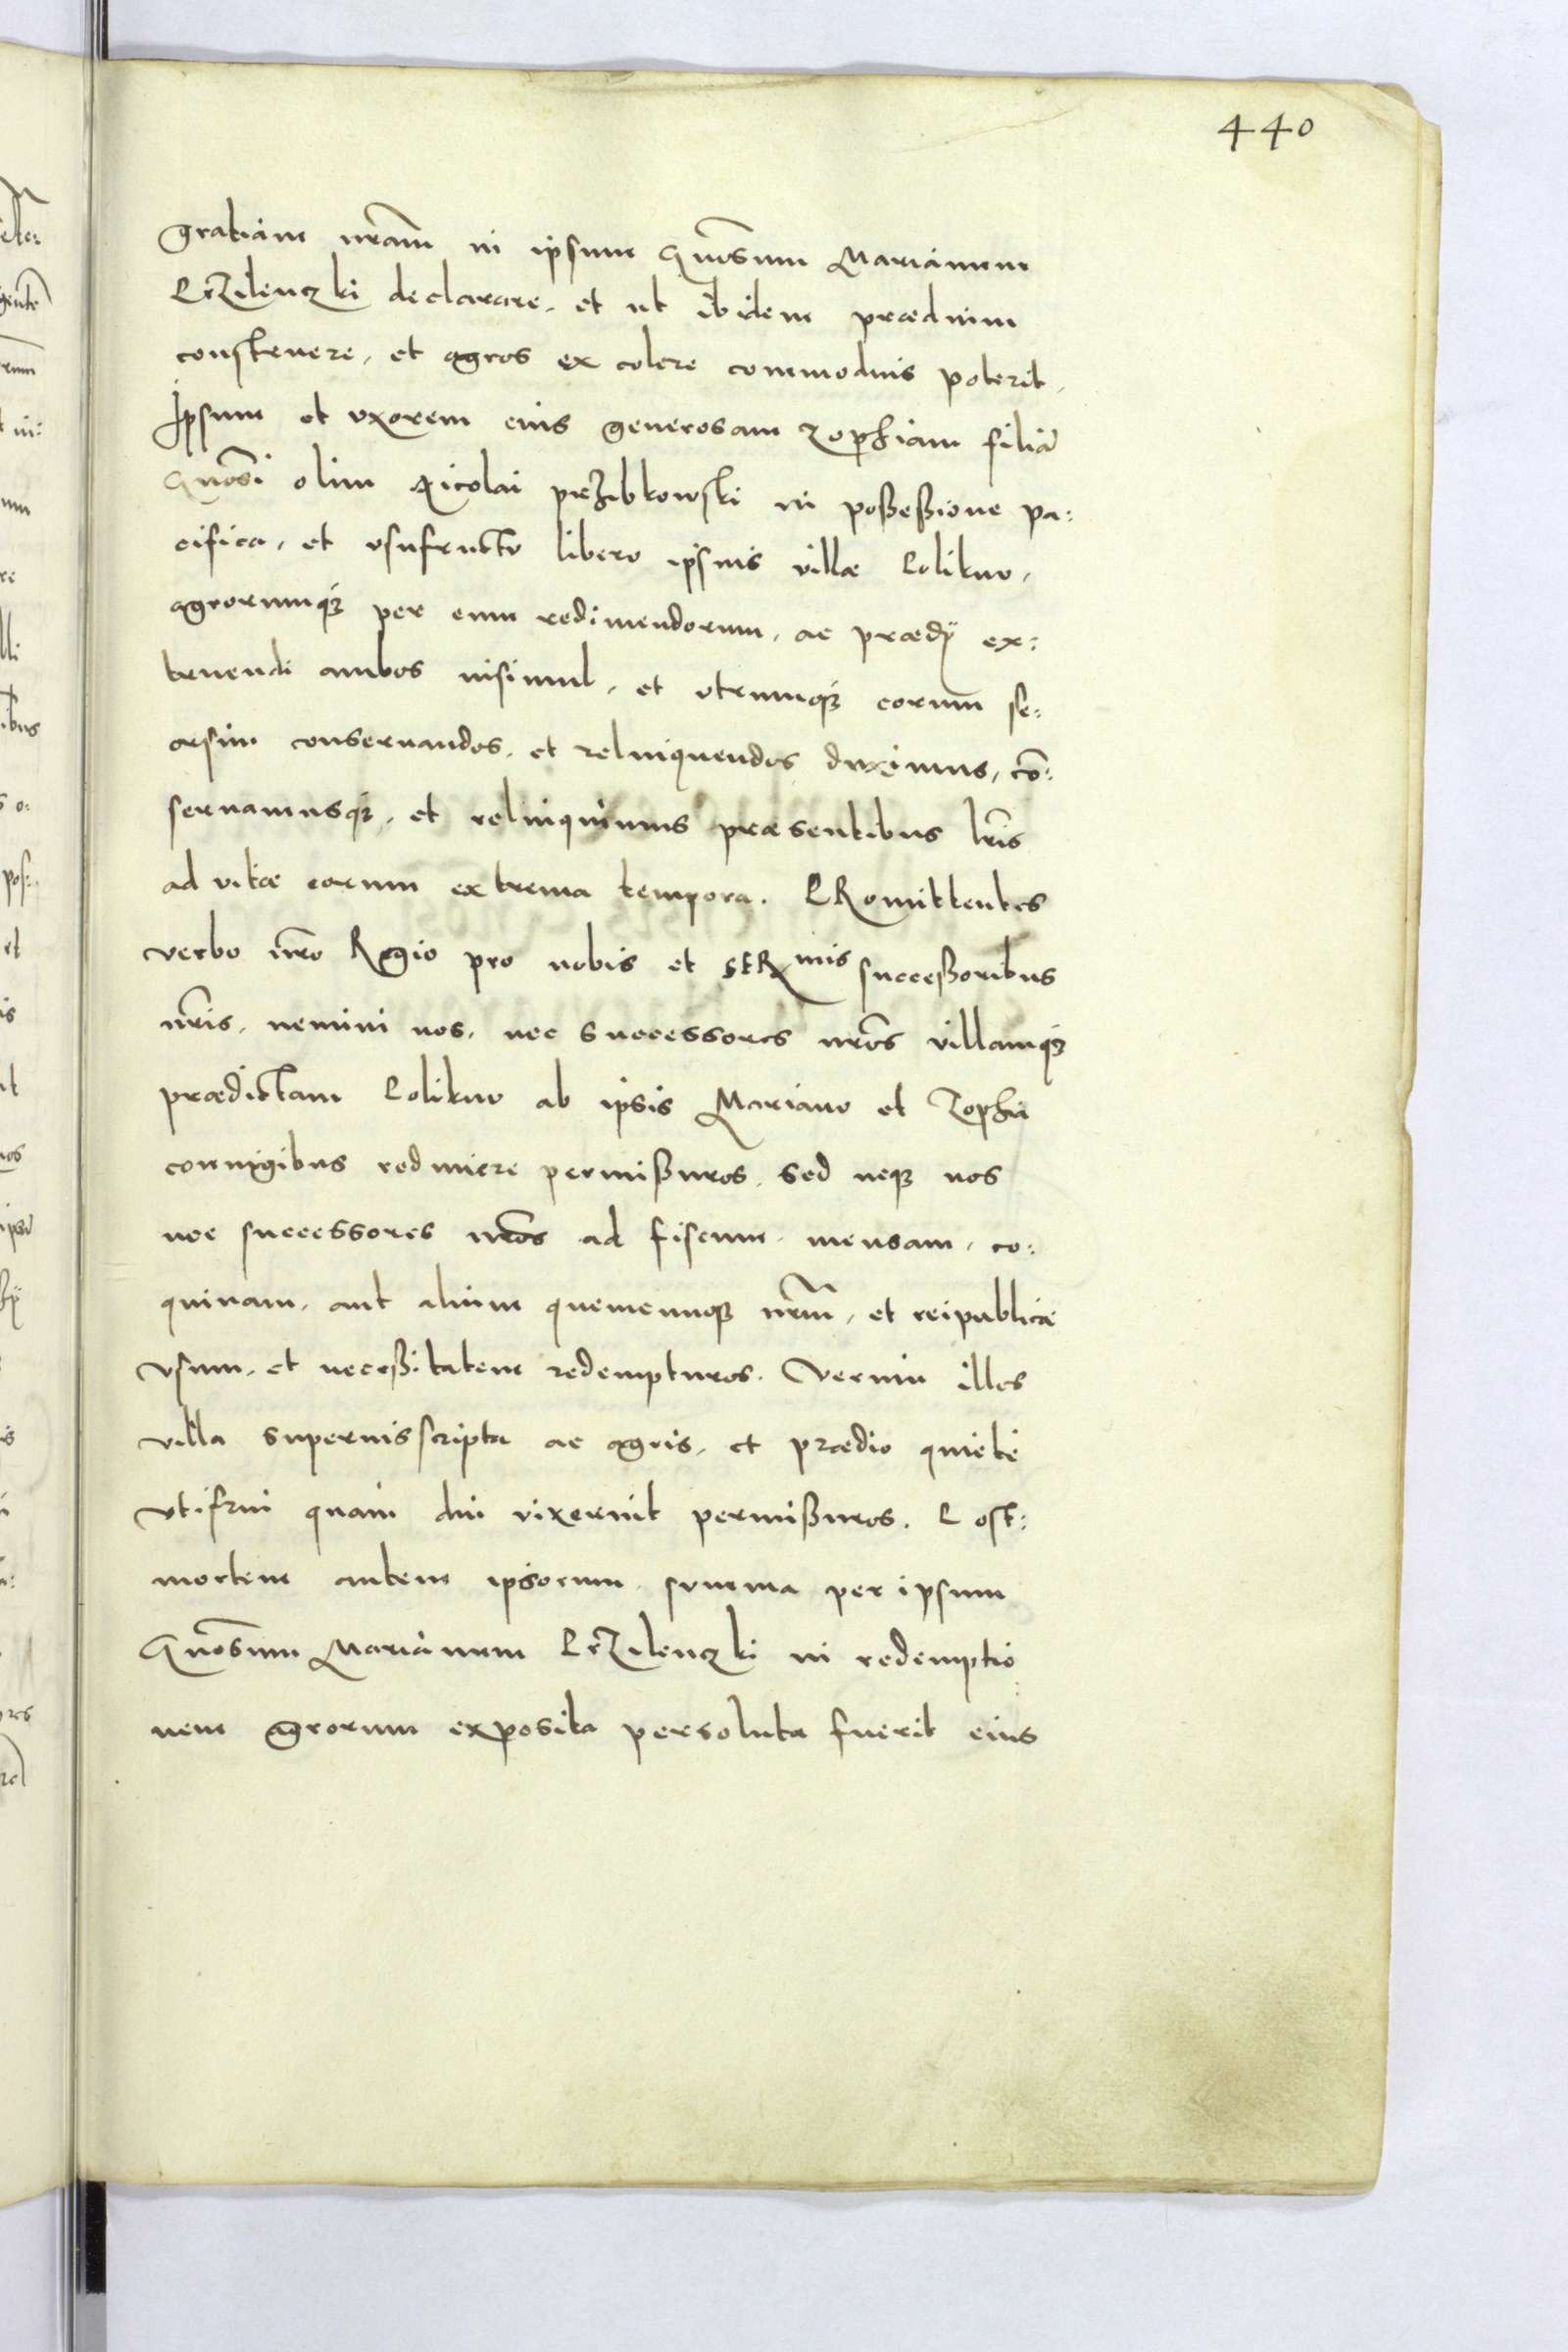 440
gratiam nr̃am in ipsum Gñosum Marianum
Przilenczki declarare, et ut ibidem prædium
construere, et agros ex colere commodius poterit,
Ipsum et vxorem eius generosam Zophiam filiã
Gñosi olim Nicolai przibkowski in poßeßione pa:
cifica, et vsufructu libero ipsius villæ Polikno,
agrorumq₃ per eum redimendorum, ac prædij ex:
truendi ambos insimul, et vtrumq₃ eorum se:
orsim conseruandos, et relinquendos duximus, cõ:
seruamusq₃, et relinquimus præsentibus lr̃is
ad vitæ eorum extrema tempora. PRomittentes
verbo nr̃o Regio pro nobis et SERmis succeßoribus
nr̃is, nemini nos, nec successores nr̃os villamq₃
prædictam Polikno ab ipsis Mariano et Zophia
coniugibus redimere permißuros, sed neq₃ nos
nec successores nr̃os ad fiscum, mensam, co:
quinam, aut alium quemcunq₃ nr̃m, et reipublicæ
vsum, et neceßitatem redempturos. Verum illos
villa superius scripta ac agris, et prædio quiete
vtifrui quam diu vixerint permißuros. Post:
mortem autem ipsorum, summa per ipsum
Gñosum Marianum Przilenczki in redemptio
nem agrorum exposita persoluta fuerit eius